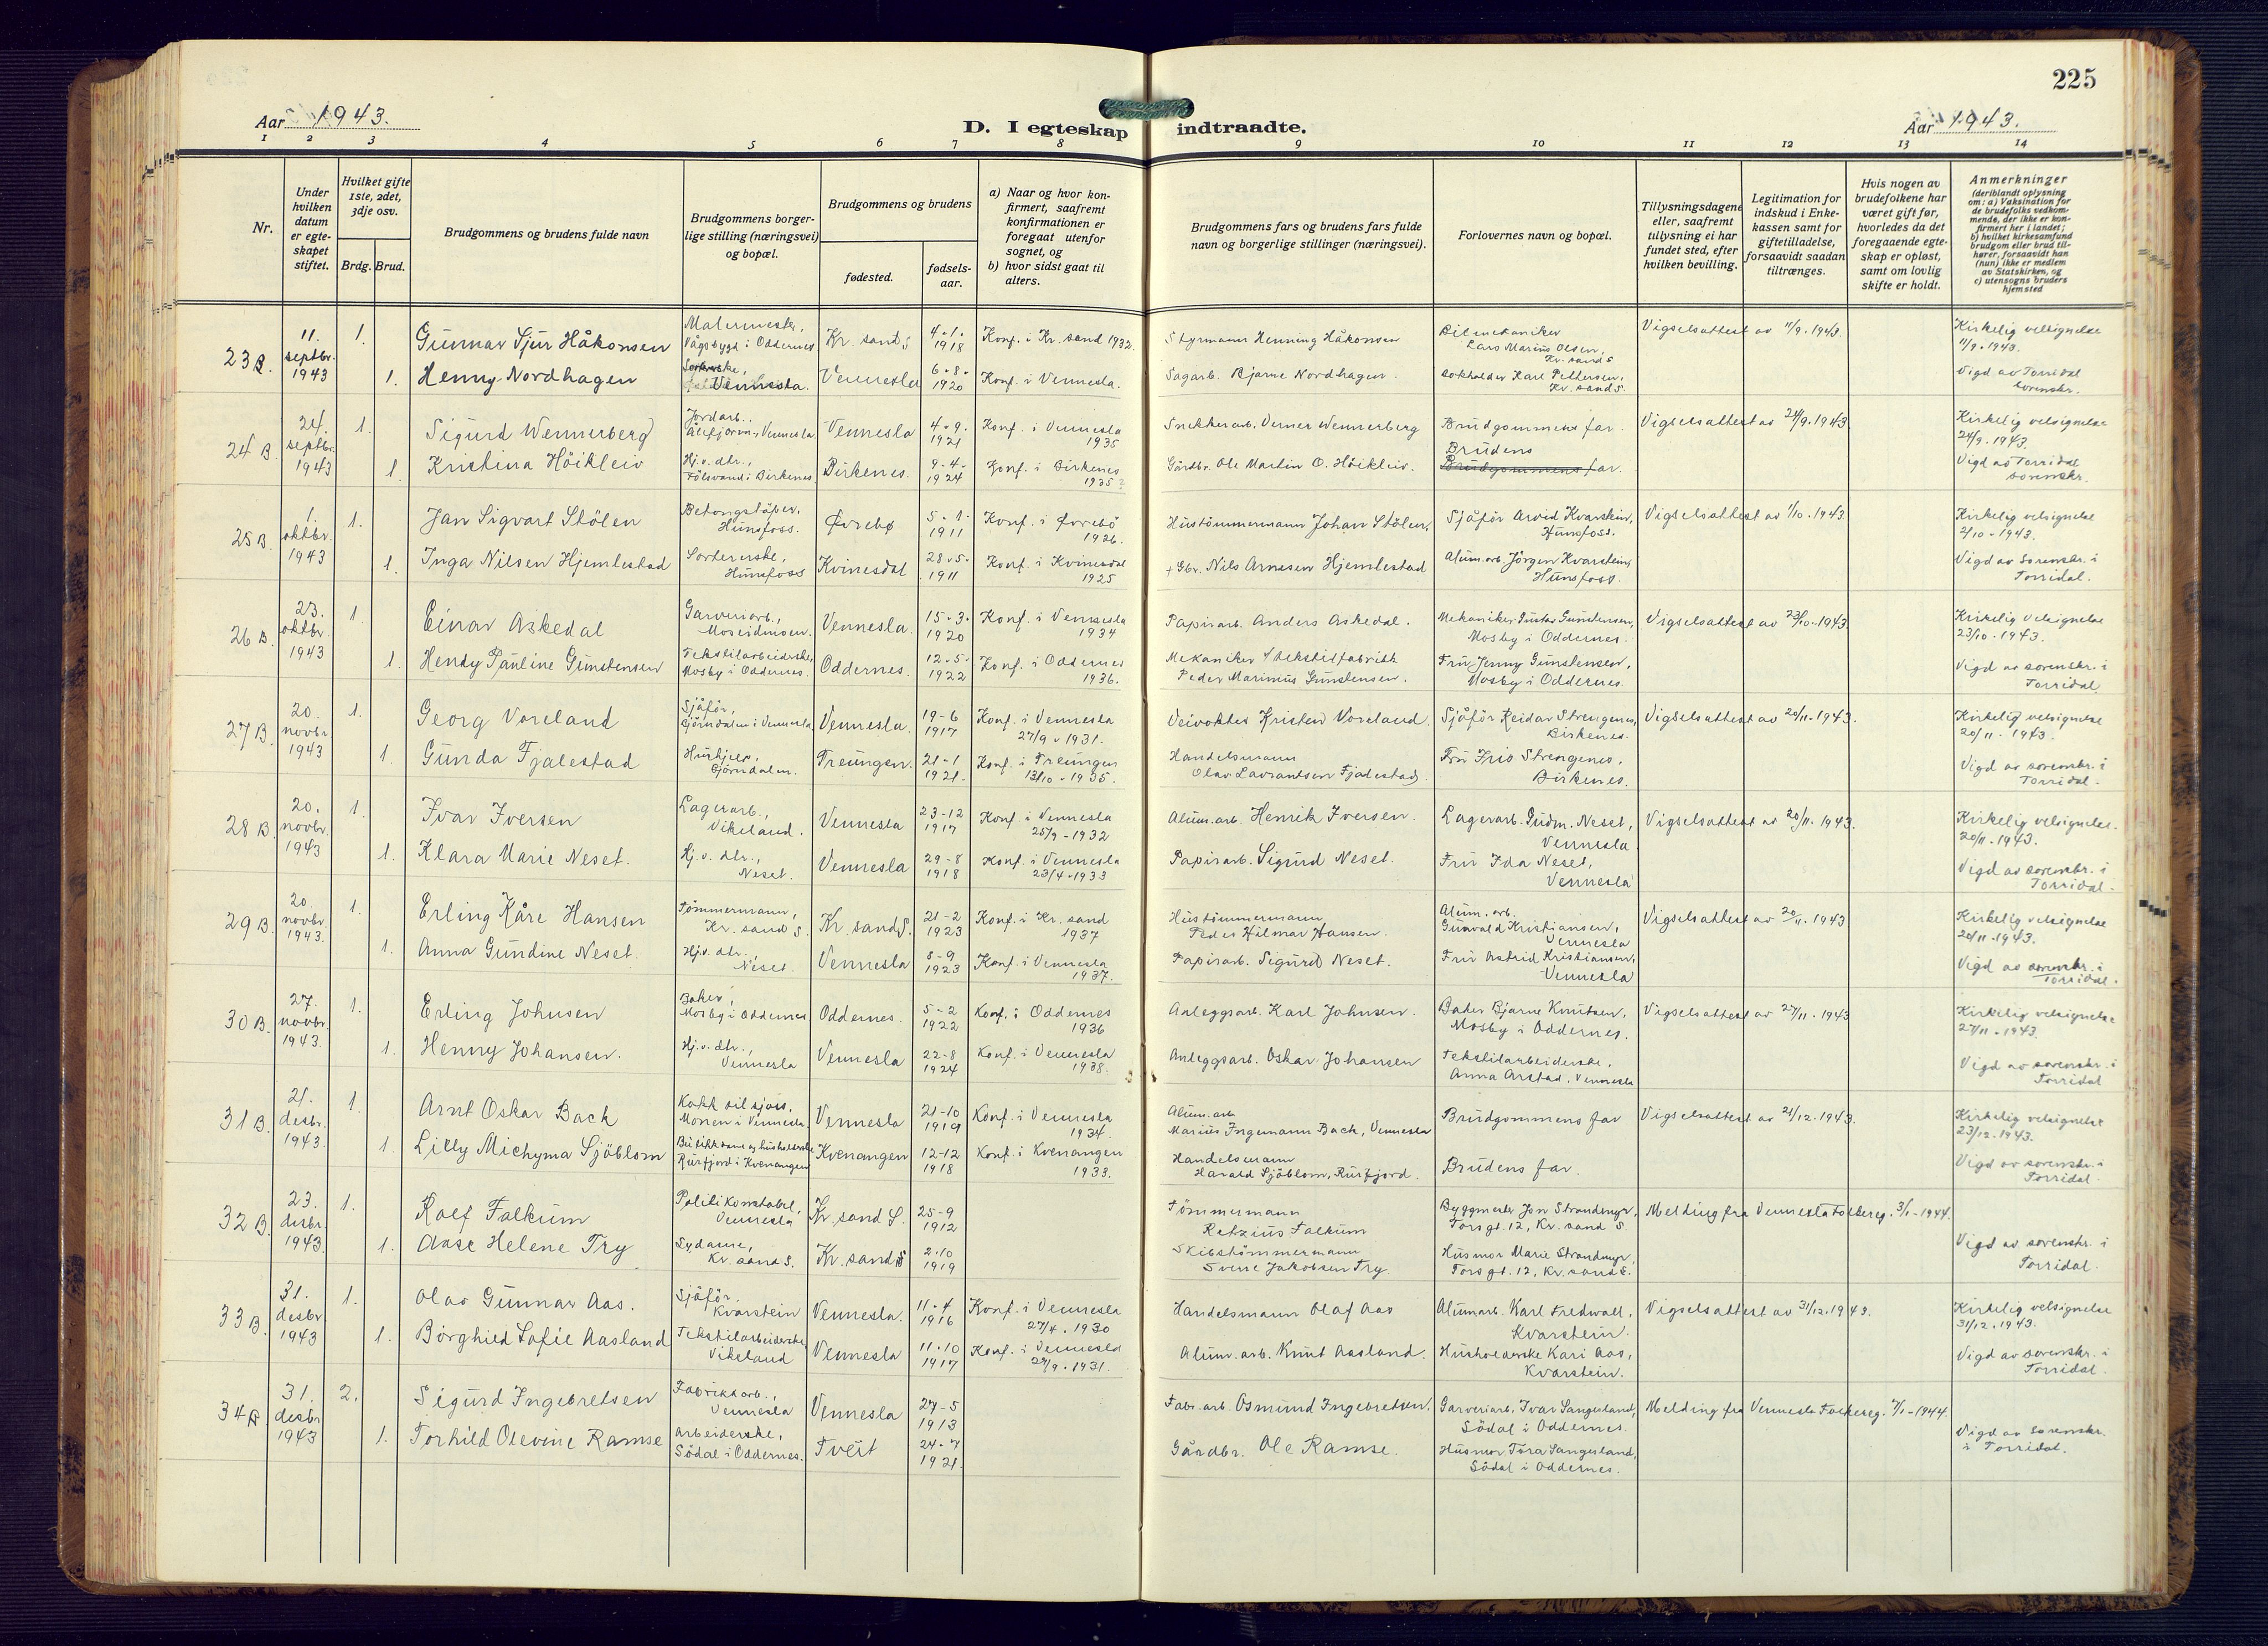 225
Aar 1943.
D. I egteskap indtraadte.
Aar 1943.
1 2 3 4 5 6 7 8 9 10 11 12 13 14
Nr.
Under hvilken datum er egte-skapet stiftet.
Hvilket gifte 1ste, 2det, 3dje osv.
Brdg. Brud.
Brudgommens og brudens fulde navn
Brudgommens borger-lige stilling (næringsvei) og bopæl.
Brudgommens og brudens
fødested.
fødsels-aar.
a) Naar og hvor kon-firmert, saafremt konfirmationen er foregaat utenfor sognet, og
b) hvor sidst gaat til alters.
Brudgommens fars og brudens fars fulde navn og borgerlige stillinger (næringsvei).
Forlovernes navn og bopæl.
Tillysningsdagene eller, saafremt tillysning ei har fundet sted, efter hvilken bevilling.
Legitimation for indskud i Enke-kassen samt for giftetilladelse, forsaavidt saadan tiltrænges.
Hvis nogen av brudefolkene har været gift før, hvorledes da det foregaaende egte-skap er opløst, samt om lovlig skifte er holdt.
Anmerkninger
(deriblandt oplysning om: a) Vaksination for de brudefolks vedkom-mende, der ikke er kon-firmert her i landet; b) hvilket kirkesamfund brudgom eller brud til-hører, forsaavidt han (hun) ikke er medlem av Statskirken, og c) utensogns bruders hjemsted
23 B. 11. septbr. 1943 1. Gunnar Sjur Håkonsen Malermester, Vågsbygd i Oddernes Kr. sand S 4-1-1918 Konf. i Kr. sand 1932. Styrmann Henning Håkonsen Bilmekaniker Lars Marius Olsen, Kr. sand S Vigselsattest av 11/9-1943. Kirkelig velsignelse 11/9-1943.
1. Henny Nordhagen Vennesla. Vennesla 6-8-1920 Konf. i Vennesla. Sagarb. Bjarne Nordhagen Karl Pettersen, Kr. sand S. Vigd av Torridal sorenskr.
24 B. 24. septbr. 1943 1. Sigurd Wennerberg Jordarb., Vennesla Vennesla 4-9-1921 Konf. i Vennesla 1935 Snekkerarb. Verner Wennerberg Brudgommens far. Vigselsattest av 24/9-1943 Kirkelig velsignelse 24/9-1943.
1. Kristina Höikleiv Hj.v. dtr., Fölsvand i Birkenes Birkenes. 9-4-1924 Konf. i Birkenes 1935? Gårdbr. Ole Martin O. Höikleiv. Brudens Brudgommens far. Vigd av Torridal sorenskr.
25 B. 1. oktbr. 1943 1. Jan Sigvart Stölen Betongstöper, Hunsfoss. Øvrebø 5-1-1911 Konf. i Øvrebö 1926. Hustömmermann Johan Stölen, Sjåför Arvid Kvarstein, Hunsfoss. Vigselsattest av 1/10-1943. Kirkelig velsignelse 2/10-1943.
1. Inga Nilsen Hjemlestad Sortererske, Hunsfoss Kvinesdal 28-5-1911 Konf. i Kvinesdal 1925 + Gbr. Nils Arnesen Hjemlestad Alum.arb. Jörgen Kvarstein, Hunsfoss. Vigd av Sorenskr. i Torridal.
26 B. 23. oktbr. 1943 1. Einar Askedal Garveriarb., Moseidmoen. Vennesla. 15-3-1920 Konf. i Vennesla 1934 Papirarb. Anders Askedal. Mekaniker Gustav Gunstensen, Mosby i Oddernes. Vigselsattest av 23/10-1943 Kirkelig velsignelse 23/10-1943.
1. Hendy Pauline Gunstensen Tekstilarbeiderske, Mosby i Oddernes. Oddernes. 12-5-1922 Konf. i Oddernes 1936. Mekaniker v/ tekstilfabrikk Peder Marinius Gunstensen. Fru Jenny Gunstensen, Mosby i Oddernes. Vigd av sorenskr. i Torridal
27 B. 20. novbr. 1943 1. Georg Voreland Sjåför, Grørndalen i Vennesla Vennesla. 19-6 1917 Konf. i Vennesla 27/9-1931. Veivokter Kristen Voreland. Sjåför Reidar Strengenes, Birkenes. Vigselsattest av 20/11-1943. Kirkelig velsignelse 20/11-1943.
1. Gunda Fjalestad Hushjelp, Treungen. 21-1 1921. Konf. i Treungen 13/10-1935. Handelsmann Olav Lavrantsen Fjalestad Fru Iris Strengenes, Birkenes. Vigd av sorenskr. i Torridal.
28 B. 20. novbr. 1943 1. Ivar Iversen Lagerarb., Vikeland. Vennesla 23-12 1917 Konf. i Vennesla 25/9-1932 Alum.arb. Henrik Iversen. Lagerarb. Gudm. Neset, Vennesla. Vigselsattest av 20/11-1943. Kirkelig velsignelse. 20/11-1943.
1. Klara Marie Neset. Hj.v. dtr., Neset. Vennesla 29-8 1918 Konf. i Vennesla 23/4-1933 Papirarb. Sigurd Neset. Fru Ida Neset, Vennesla Vigd av sorenskr. i Torridal.
29 B. 20. novbr. 1943. 1. Erling Kåre Hansen Tömmermann, Kr. sand S. Kr. sand S. 21-2 1923 Konf. i Kr. sand 1937 Hustömmermann Peder Hilmar Hansen. Alum. arb. Gunvald Kristiansen, Vennesla Vigselsattest av 20/11-1943 Kirkelig velsignelse 20/11-1943.
1. Anna Gundine Neset. Hj.v. dtr., Neset. Vennesla 8-9 1923 Konf. i Vennesla 1937. Papirarb. Sigurd Neset. Fru Astrid Kristiansen, Vennesla Vigd av sorenskr. i Torridal.
30 B. 27. novbr. 1943. 1. Erling Johnsen Baker, Mosby i Oddernes Oddernes. 5-2 1922 Konf. i Oddernes 1936 Anleggsarb. Karl Johnsen. Baker Bjarne Knutsen, Mosby i Oddernes. Vigselsattest av 27/11-1943 Kirkelig velsignelse 27/11-1943.
1. Henny Johansen. Hj.v. dtr., Vennesla Vennesla 22-8 1924 Konf. i Vennesla 1938. Anleggsarb. Oskar Johansen Tekstilarbeiderske, Anna Arstad, Vennesla Vigd av sorenskr. i Torridal
31 B. 21. desbr. 1943. 1. Arnt Oskar Back Kokk til sjøs, Moseen i Vennesla. Vennesla 21-10 1919 Konf. i Vennesla 1934. Alum.arb Marius Ingemann Back, Vennesla Brudgommens far Vigselsattest av 21/12-1943. Kirkelig velsignelse 23/12-1943.
1. Lilly Michyma Sjöblom Rurfjord i Kvenangen Kvenangen 12-12 1918 Konf. i Kvenangen 1933. Handelsmann Harald Sjöblom, Rurfjord. Brudens far. Vigd av sorenskr. i Torridal
32 B. 23. desbr. 1943. 1. Rolf Falkum Politikonstabel, Vennesla Kr. sand S. 25-9 1912 Tömmermann Retzius Falkum Byggmester Jon Strandmyr, Torsgt. 12, Kr. sand S. Melding fra Vennesla Folkereg. 3/1-1944.
1. Aase Helene Try Sydame, Kr. sand S. Kr. sand S 2.10 1919 Skibstömmermann Sverre Jakobsen Try Husmor Marie Strandmyr, Torsgt. 12, Kr. sand S. Vigd av sorenskr. i Torridal.
33 B. 31. desbr 1943 1. Olav Gunnar Aas. Sjåför. Kvarstein Vennesla. 11-4 1916 Konf. i Vennesla 27/4. 1930 Handelsmann Olaf Aas Alumarb. Karl Fredwall, Kvarstein. Vigselsattest av 31/12.1943. Kirkelig velsignelse 31/12.1943.
1. Borghild Sofie Aasland Tekstilarbeiderske, Vikeland Vennesla 11.10 1917 Konf. i Vennesla 27/9.1931. Alum. arb. Knut Aasland. Husholderske Kari Aas, Kvarstein. Vigd av sorenskr. i Torridal.
34 B. 31. desbr 1943 2. Sigurd Ingebretsen Fabrikkarb., Vennesla Vennesla 27-5 1913 Fabr. arb. Osmund Ingebretsen. Garveriarb. Ivar Sangesland, Södal i Oddernes. Melding fra Vennesla Folkereg. 7/1-1944.
1. Torhild Olevine Ramse Arbeiderske, Södal i Oddernes. Tveit 24-7 1921. Gårdbr. Ole Ramse. Husmor Tora Sangesland, Södal i Oddernes. Vigd av Sorenskr. i Torridal.